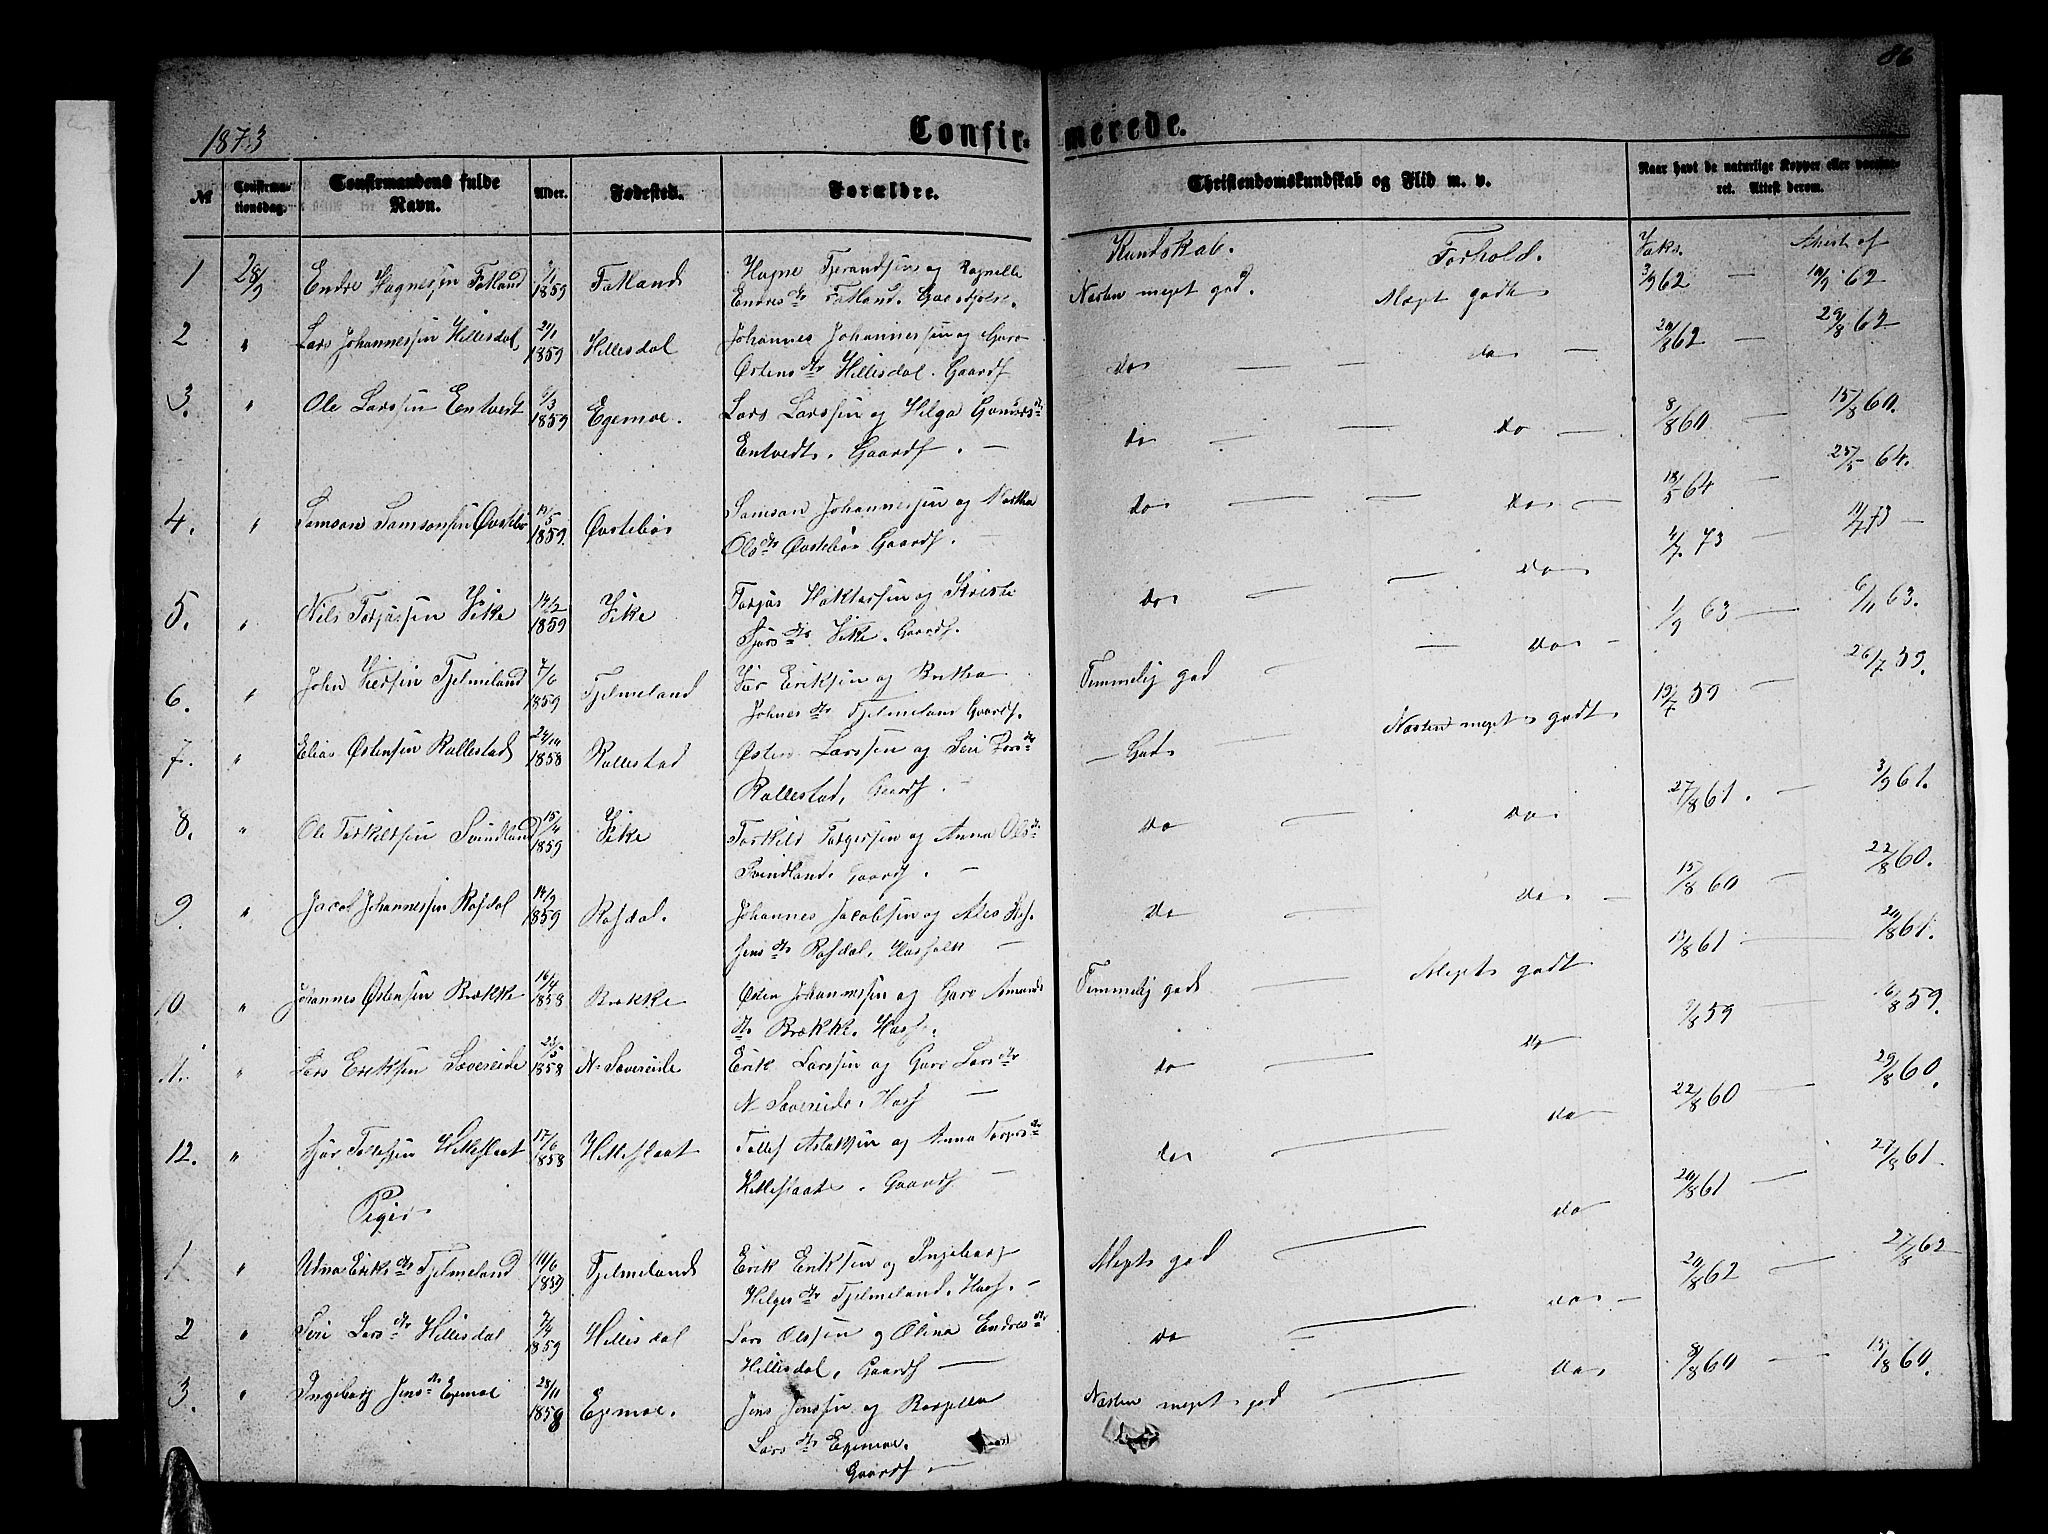 86
1873
Confirmerede.
№
Confirmationsdag.
Confirmandens fulde Navn.
Alder.
Fødested.
Forældre.
Christendomskundskab og Flid m. v.
Naar havt de naturlige Kopper eller vaccineret. Attest derom.
Kundskab. Forhold. Vakc. Attest af
1 28/9 Endre Hognessen Fatland 1859 Fatland Hogne Tjerandsen og Ragnilla
Endresdtr Fatland. Gaardfolk. Næsten meget god. Meget godt 3/9 62 — 10/9 62
2 " Lars Johannessen Hillesdal 21/1 1859 Hillesdal Johannes Johannessen og Guro
Østensdtr Hillesdal. Gaardf do — — do — 20/8 62 — 29/8 62
3. " Ole Larssen Entvest 6/3 1859 Egemoe. Lars Larssen og Helga Gunarsdtr
Entvedt. Gaardf. — do — — do — 8/8 60 — 15/8 60.
4. " Samson Samsonsen Øvstebø 1859. Øvstebø Samson Johannessen og Martha
Olsdtr Øvstebø Gaardf. — do — — do — 18/5 64 — 25/5 64.
4/7 73 — 11/7 73 —
5. " Nils Torjussen Vike 14/2 1859 Vike Torjus og Kristi
Sjursdtr Vike. Gaardf. do — — do 1/9 63 — 6/11 63.
6. " John Tjelmeland 7/6 1859 Tjelmeland Eriksen og Britha
Johnesdtr Tjelmeland Gaardf. Temmelig god — — do — 19/7 59 — 26/7 59.
7. " Elias Østensen Rullestad 24/10 1858 Rullestad Østen Larssen og Seri Larsdtr
Rullestad, Gaardf. — God — Næsten meget godt 27/8 61. — 3/9 61.
8. " Ole Torkildsen Svindland 1859 Vike Torkild Torgersen og Anna Olsdtr
Svindland. Gaardf. — do — do. 15/8 60 — 22/8 60.
9. " Jacob Johannessen Rafdal 14/9 1859 Rafdal. Johannes Jacobsen og
dtr Rafdal. Husfolk — do — do — 13/8 61 — 20/8 61.
10 " Johannes Østensen Brække 16/4 1858 Brække Østen Johannessen og Guro Amunds
dtr Brække. Husf. Temmelig god — Meget godt 9/8 59 — 16/8 59.
11. " Lars Eriksen Sævereide 23/5 1858 N. Sævereide Erik Larssen og Guri Larsdtr
N Sævereide. Husf — do — do 22/8 60 — 29/8 60.
12. " Sjur Tollefsen Hilleslaat 17/6 1858 Hilleslaat Tollef Aslaksen og Anna
Hilleslaate. Gaardf — do — do 20/8 61 — 27/8 61.
Piger.
1 " Udna Eriksdtr Tjelmeland 10/6 1859 Tjelmeland Erik Eriksen og Ingeborg
Helgesdtr Tjelmeland. Husf. — Meget god — do 20/8 62 — 27/8 62
2 " Seri Larsdtr Hillesdal 7/7 1859 Hillesdal Lars Olssen og Olina Endresdtr
Hillesdal, Gaardf — do — do — 8/8 60 — 15/8 60.
3. " Ingeborg Jensdtr Egemoe 28/11 1858 Egemoe. Jens Jenssen og
Larsdtr Egemoe. Næsten meget god — do.
Gaardf —